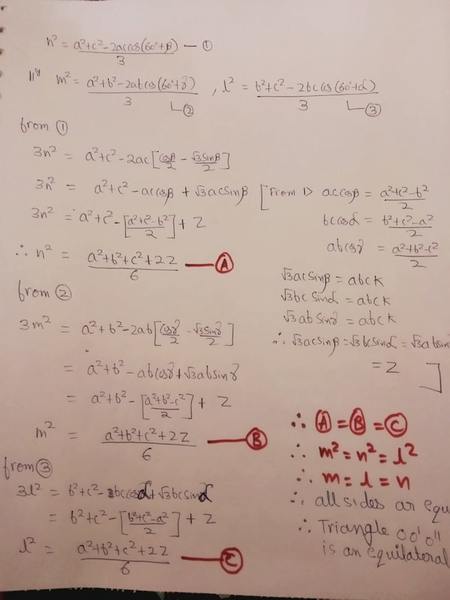 n² = a²+c²-2accos(60°+β) / 3 — ①
|||ly m² = a²+b²-2abcos(60°+γ) / 3 — ② , l² = b²+c²-2bccos(60°+α) / 3 — ③
from ①
3n² = a²+c²-2ac[cosβ/2 - √3sinβ/2]
3n² = a²+c²-accosβ + √3acsinβ
3n² = a²+c²-[a²+c²-b²/2] + Z
∴ n² = a²+b²+c²+2Z / 6 — Ⓐ
[From 1> accosβ = a²+c²-b²/2
bccosα = b²+c²-a²/2
abcosγ = a²+b²-c²/2
√3acsinβ = abck
√3bcsinα = abck
√3absinγ = abck
∴ √3acsinβ = √3bcsinα = √3absin
= Z ]
from ②
3m² = a²+b²-2ab[cosγ/2 - √3sinγ/2]
= a²+b²-abcosγ+√3absinγ
= a²+b²-[a²+b²-c²/2] + Z
m² = a²+b²+c²+2Z / 6 — Ⓑ
from ③
3l² = b²+c²-bccosα+√3bcsinα
= b²+c²-[b²+c²-a²/2] + Z
l² = a²+b²+c²+2Z / 6 — Ⓒ
∴ Ⓐ = Ⓑ = Ⓒ
∴ m² = n² = l²
∴ m = l = n
∴ all sides ar equ
∴ Triangle OO'O"
is an equilateral